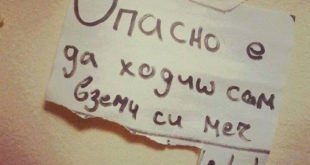 Опасно е
да ходиш сам
вземи си меч